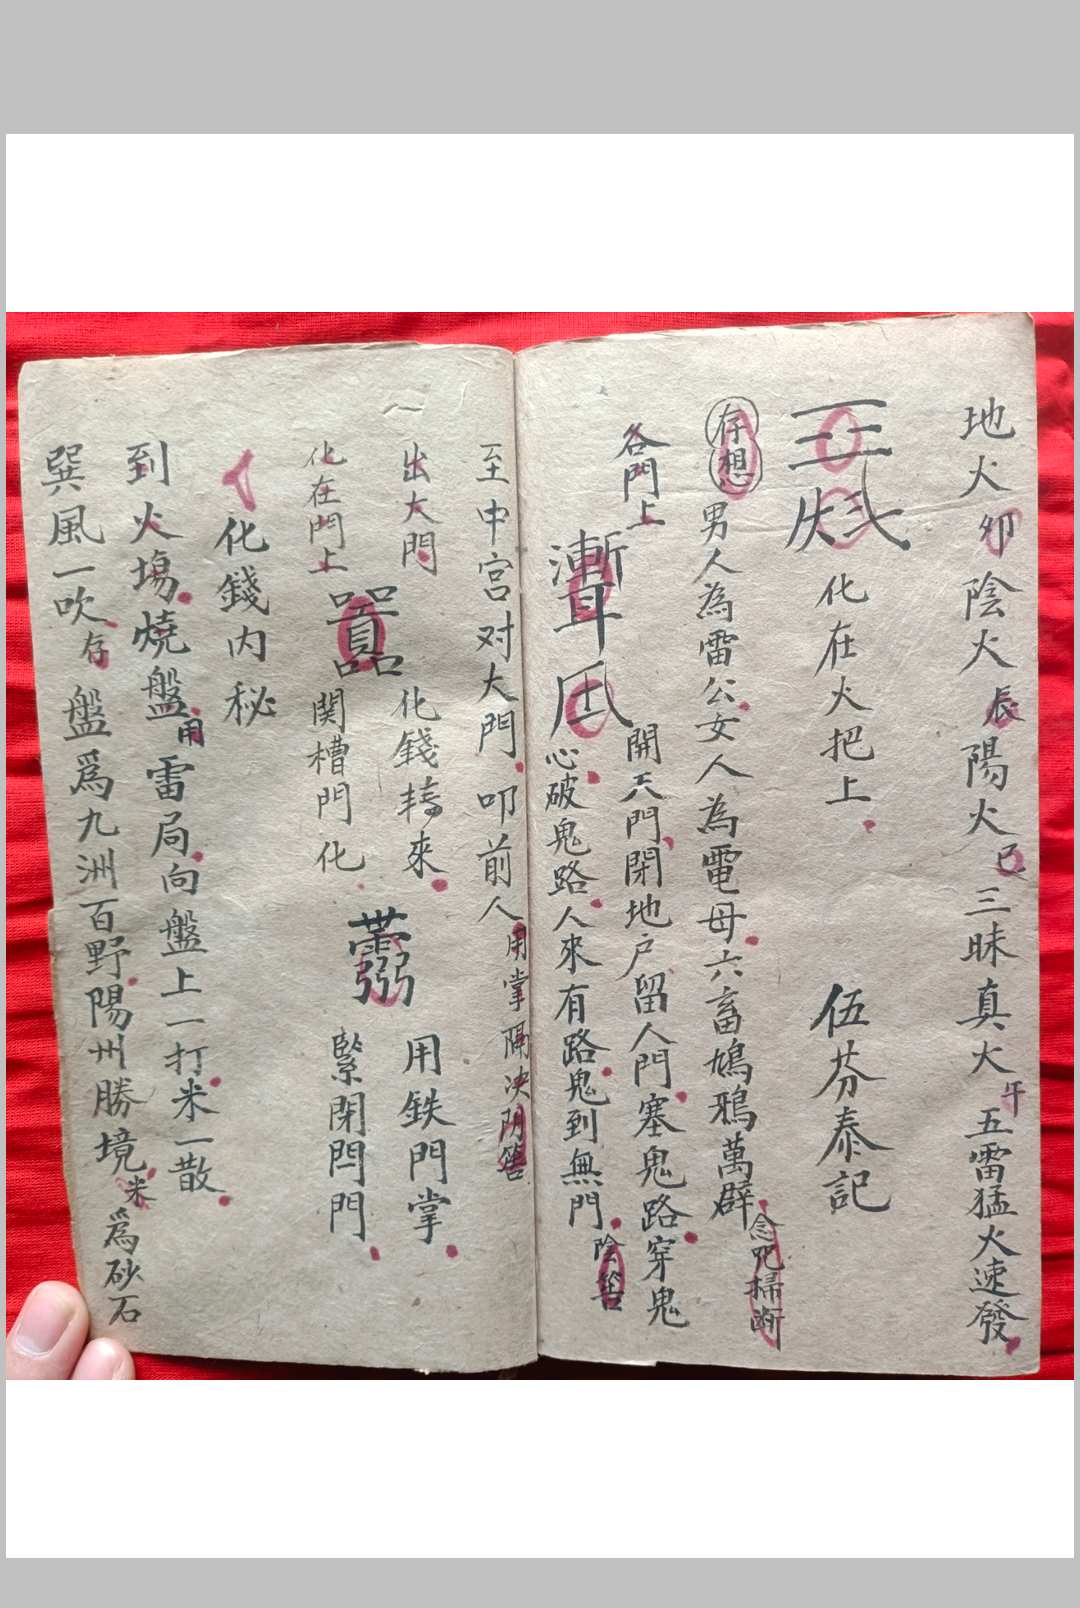 地火卯陰火辰陽火巳三昧真火午五雷猛火速發
化在火把上
伍芬泰記
存想男人為雷公女人為電母六畜鳩鴉萬辟念咒掃断
各門上
開天門閉地户留人門塞鬼路穿鬼
心破鬼路人來有路鬼到無門陰筶
至中宮对大門叩前人用掌隔决阴筶
出大門
化錢转來
用鉄門掌
化在門上
関槽門化
緊閉門
化錢内秘
到火塲燒盤用雷局向盤上一打米一散
巽風一吹存盤爲九洲百野陽州勝境米爲砂石